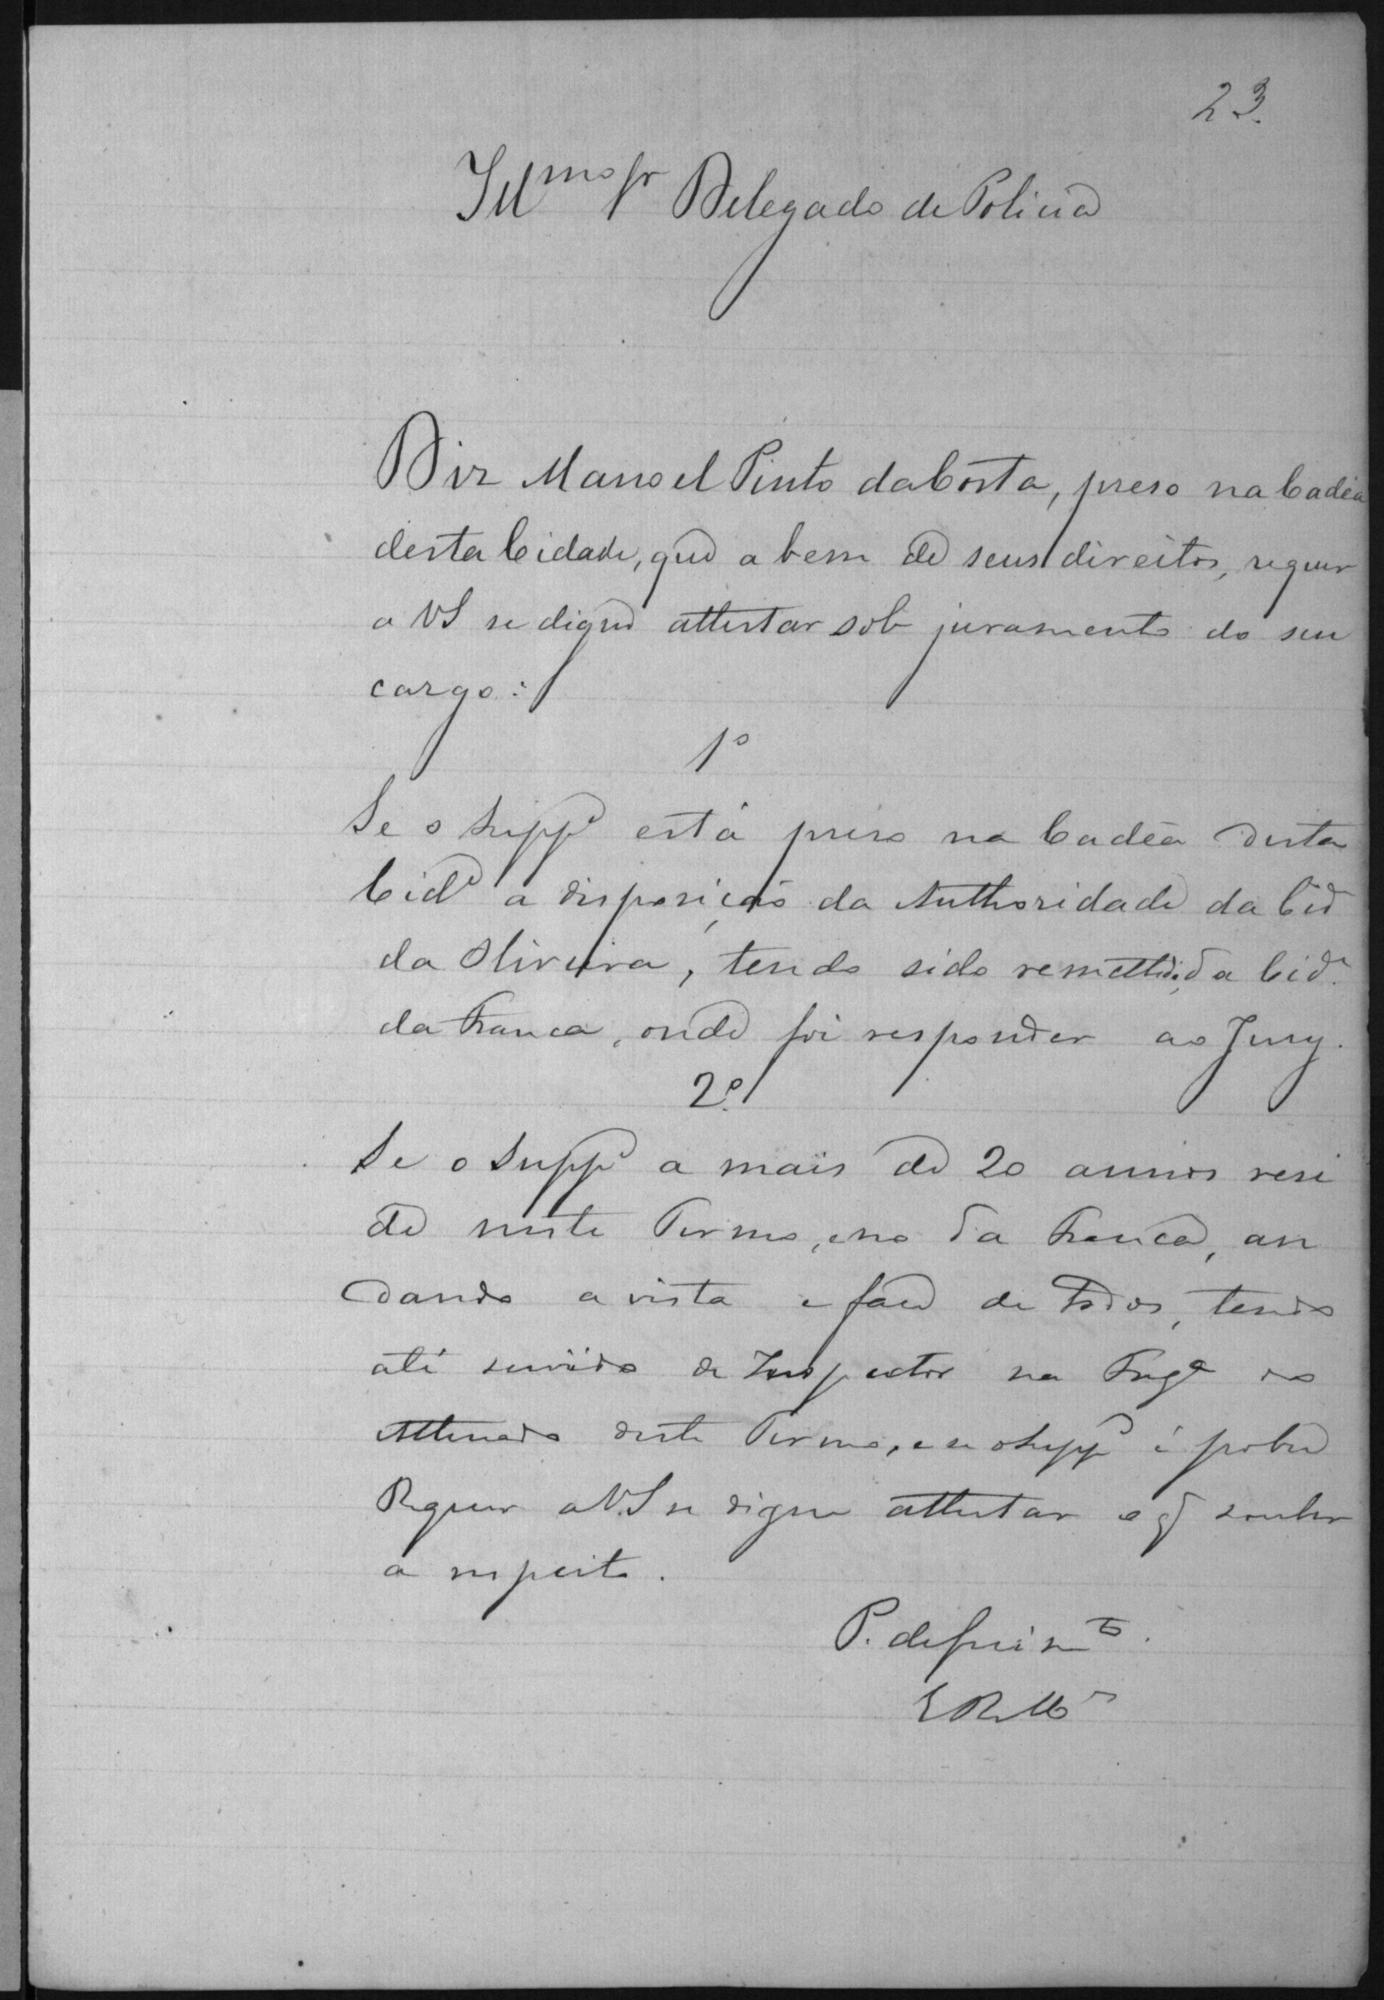 23.
Illmo Sr Delegado de Policia
Diz Manoel Pinto da Costa, preso na Cadêa
desta Cidade, que a bem de seus direitos, requer
a VS se digne attestar sob juramento do seu
cargo:
1º
Se o Suppe está preso na Cadêa desta
Cide a disposição da Authoridade da Cide
da Oliveira, tendo sido remettido da Cide
da Franca, onde foi responder ao Jury.
2º
Se o Suppe a mais de 20 annos resi
de neste Termo, e no da Franca, an
dando a vista e face de todos, tendo
até servido de Inspector na Frega do
Atterrado deste Termo, e se o Suppe é pobre
Requer a VS se digne attestar o q souber
a respeito.
P. deferimto.
E R Mce